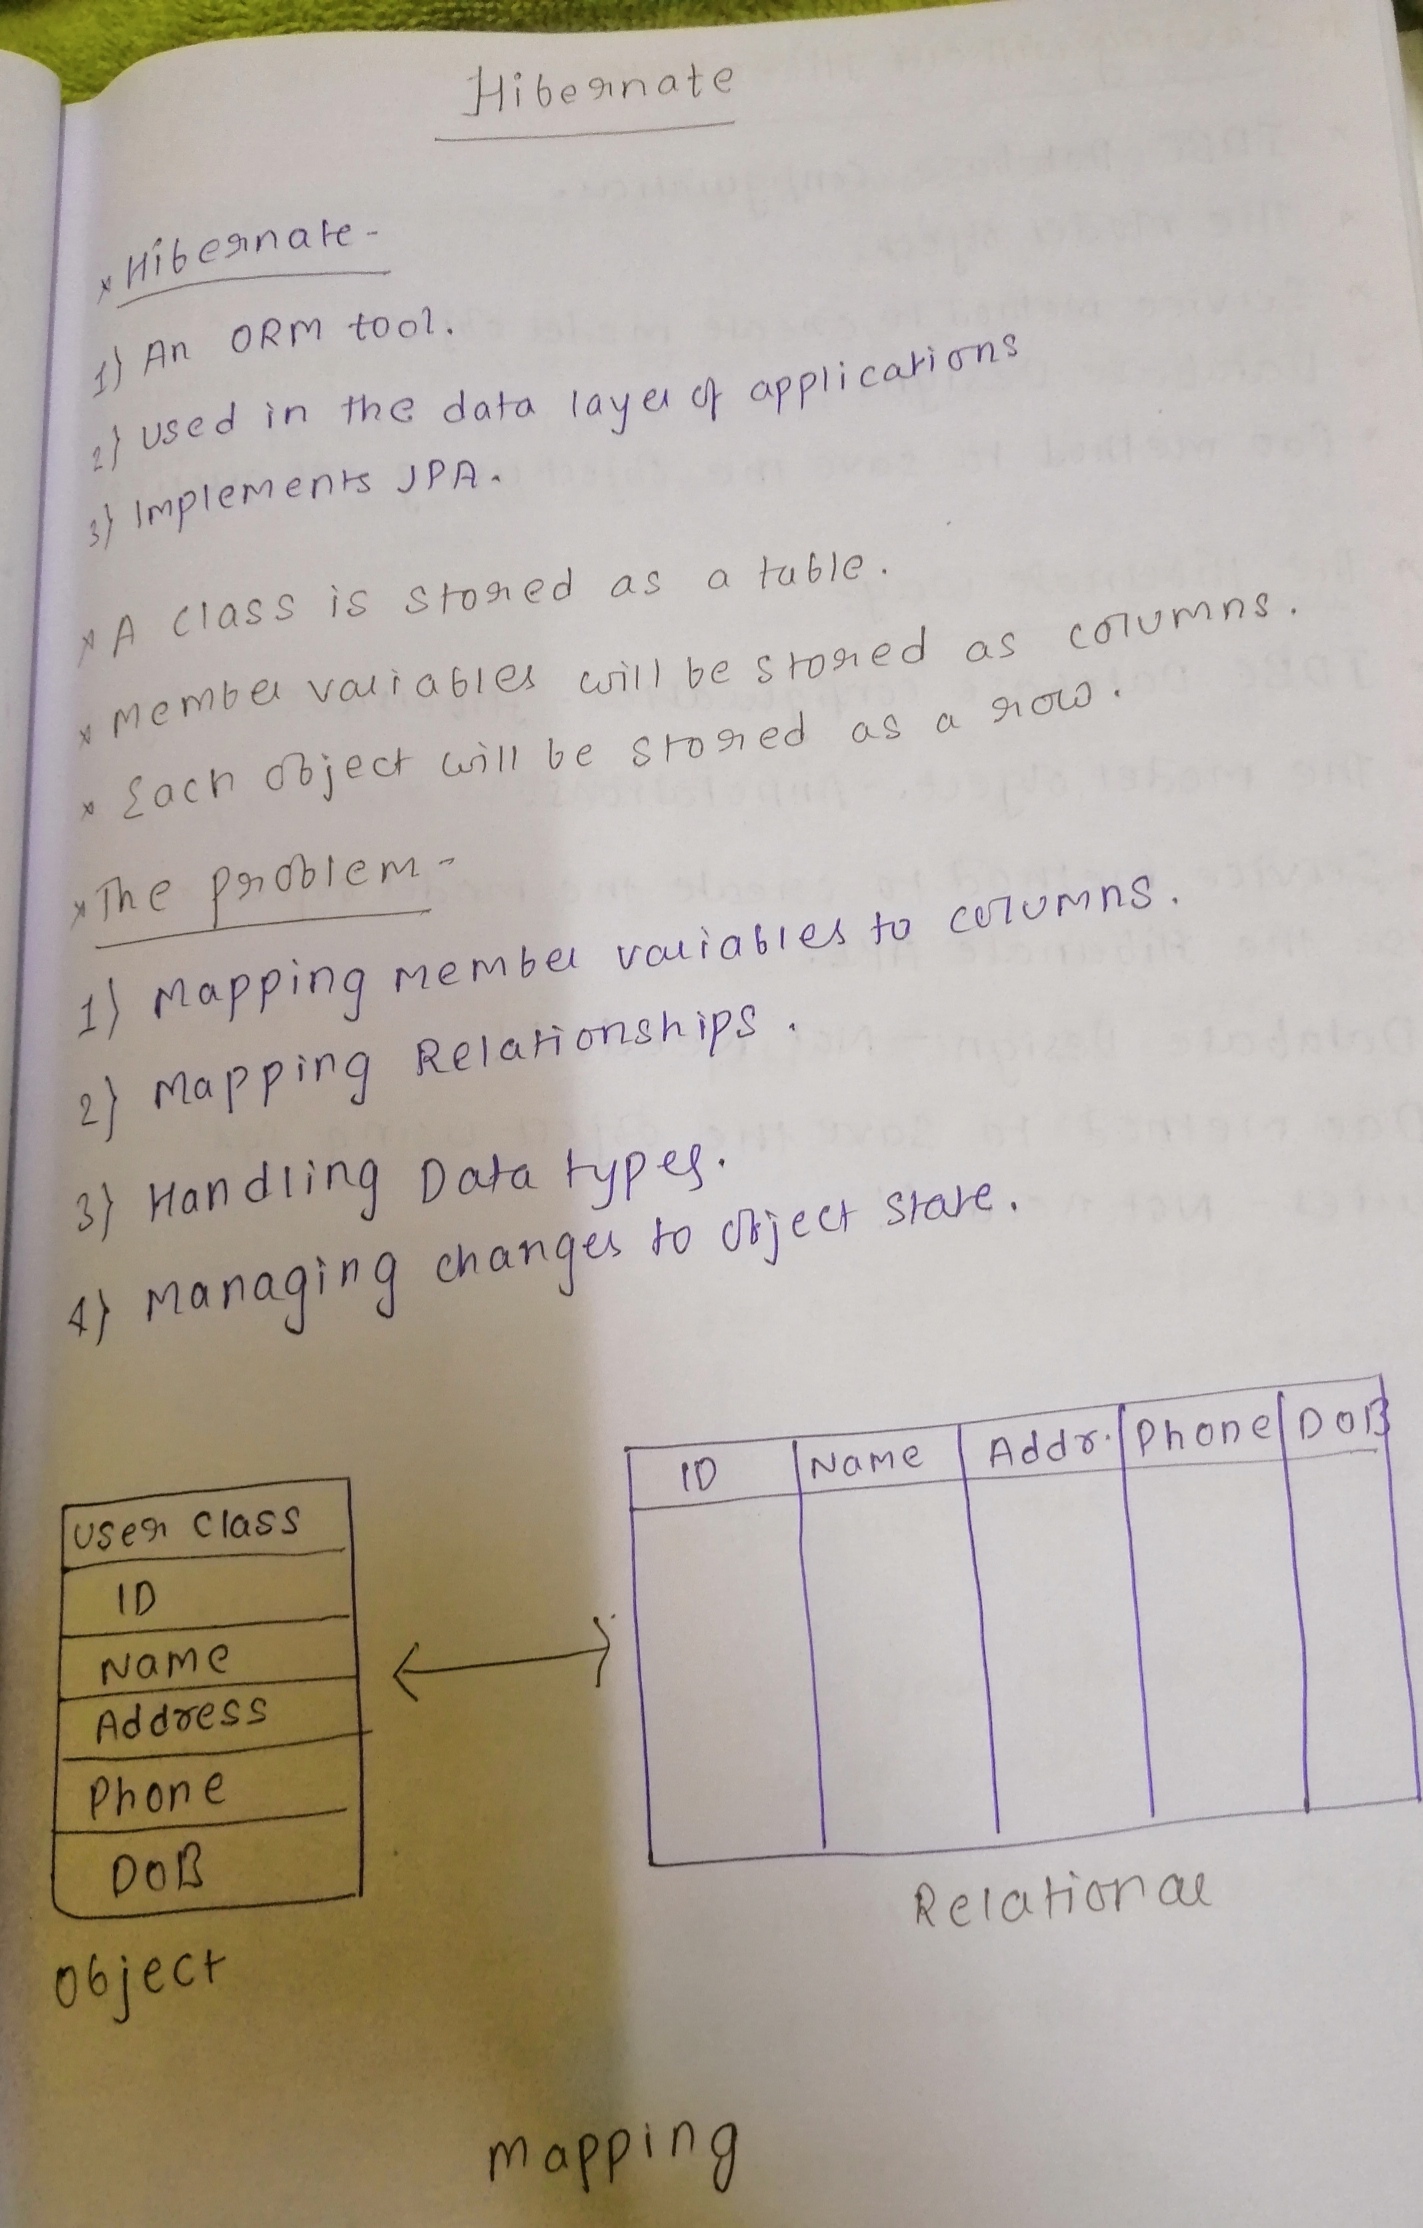 Hibernate
* Hibernate -
1) An ORM tool.
2) Used in the data layer of applications
3) Implements JPA.
* A class is stored as a table.
* Member variables will be stored as columns.
* Each object will be stored as a row.
* The problem -
1) Mapping member variables to columns.
2) Mapping Relationships.
3) Handling Data types.
4) Managing changes to object state.
ID Name Addr. Phone DOB
User Class
ID
Name
Address
Phone
DOB
Relational
Object
Mapping